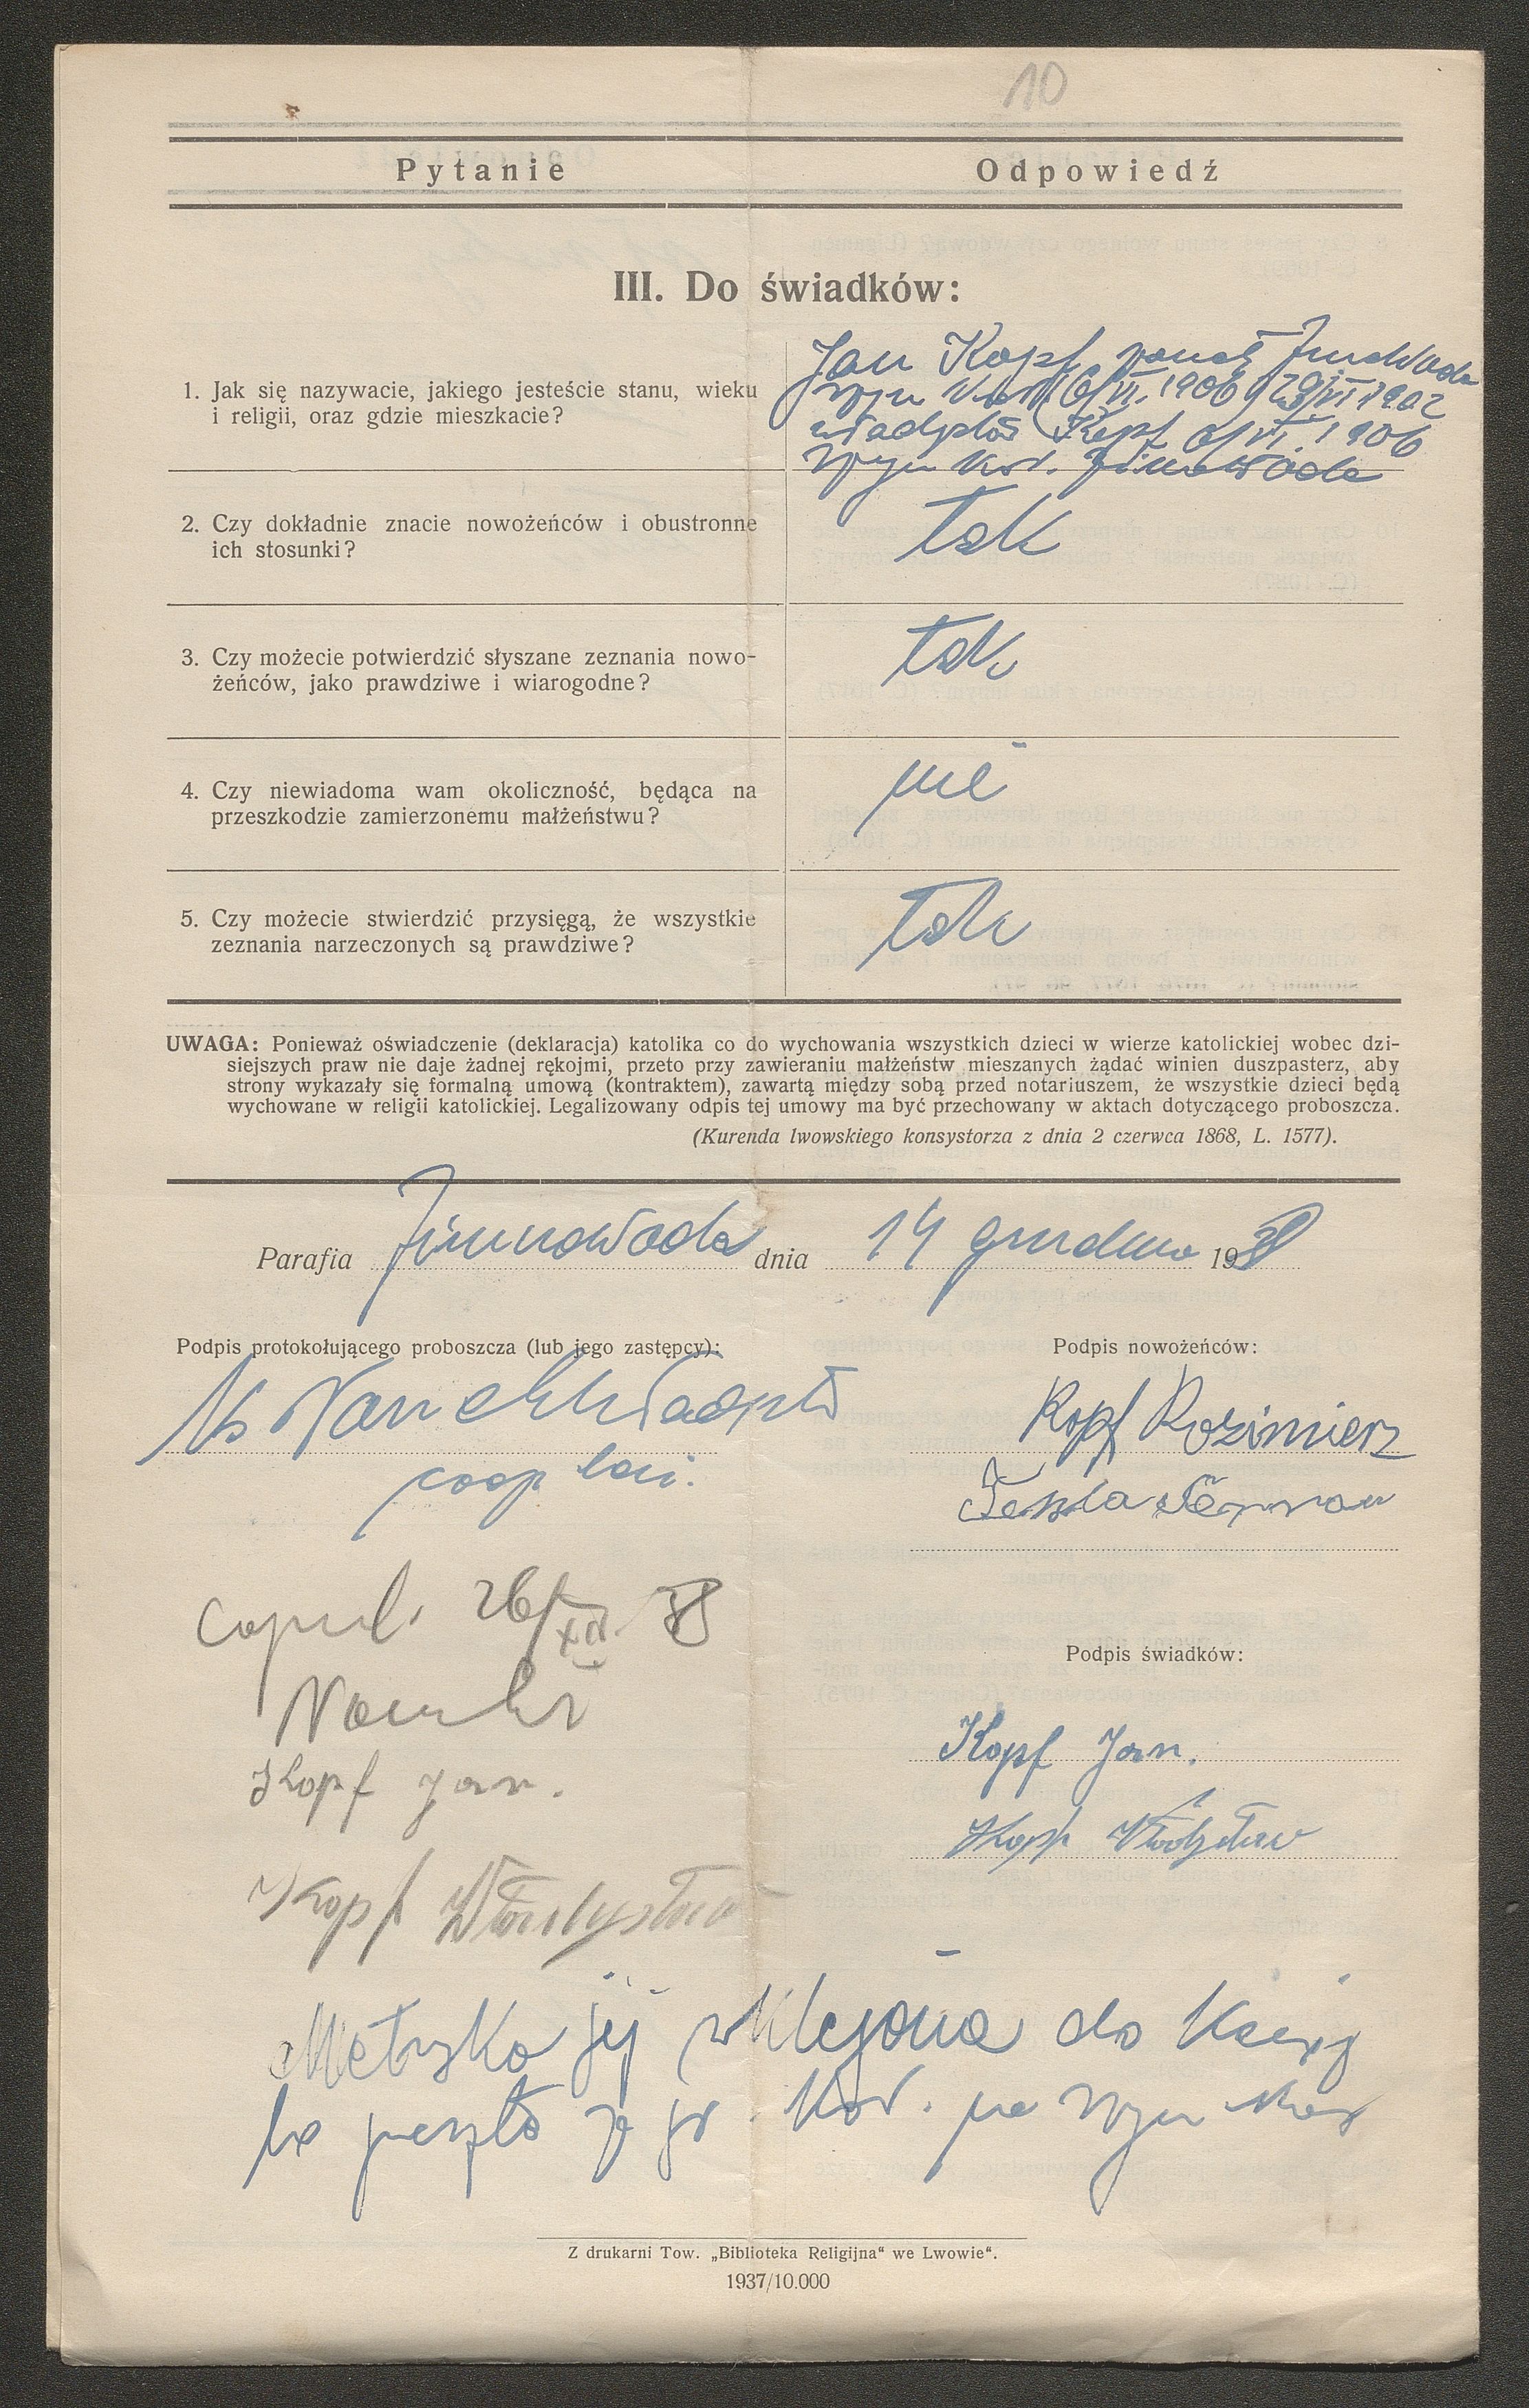 10
Pytanie Odpowiedź
III. Do świadków:
1. Jak się nazywacie, jakiego jesteście stanu, wieku
i religii, oraz gdzie mieszkacie?
Jan Kopf
6/VI. 1906 29/VI 1902
Kopf 6/VI. 1906
2. Czy dokładnie znacie nowożeńców i obustronne
ich stosunki?
tak
3. Czy możecie potwierdzić słyszane zeznania nowo-
żeńców, jako prawdziwe i wiarogodne?
tak
4. Czy niewiadoma wam okoliczność, będąca na
przeszkodzie zamierzonemu małżeństwu?
nie
5. Czy możecie stwierdzić przysięgą, że wszystkie
zeznania narzeczonych są prawdziwe?
tak
UWAGA: Ponieważ oświadczenie (deklaracja) katolika co do wychowania wszystkich dzieci w wierze katolickiej wobec dzi-
siejszych praw nie daje żadnej rękojmi, przeto przy zawieraniu małżeństw mieszanych żądać winien duszpasterz, aby
strony wykazały się formalną umową (kontraktem), zawartą między sobą przed notariuszem, że wszystkie dzieci będą
wychowane w religii katolickiej. Legalizowany odpis tej umowy ma być przechowany w aktach dotyczącego proboszcza.
(Kurenda lwowskiego konsystorza z dnia 2 czerwca 1868, L. 1577).
Parafia Zimnawoda dnia 14 grudnia 1938
Podpis protokołującego proboszcza (lub jego zastępcy): Podpis nowożeńców:
Kopf Kazimierz
coop
copul. 26/XII. 38
Podpis świadków:
Kopf Jan.
Kopf Jan.
Kopf Władysław
Metryka jej wklejona do księg
Z drukarni Tow. „Biblioteka Religijna“ we Lwowie“.
1937/10.000